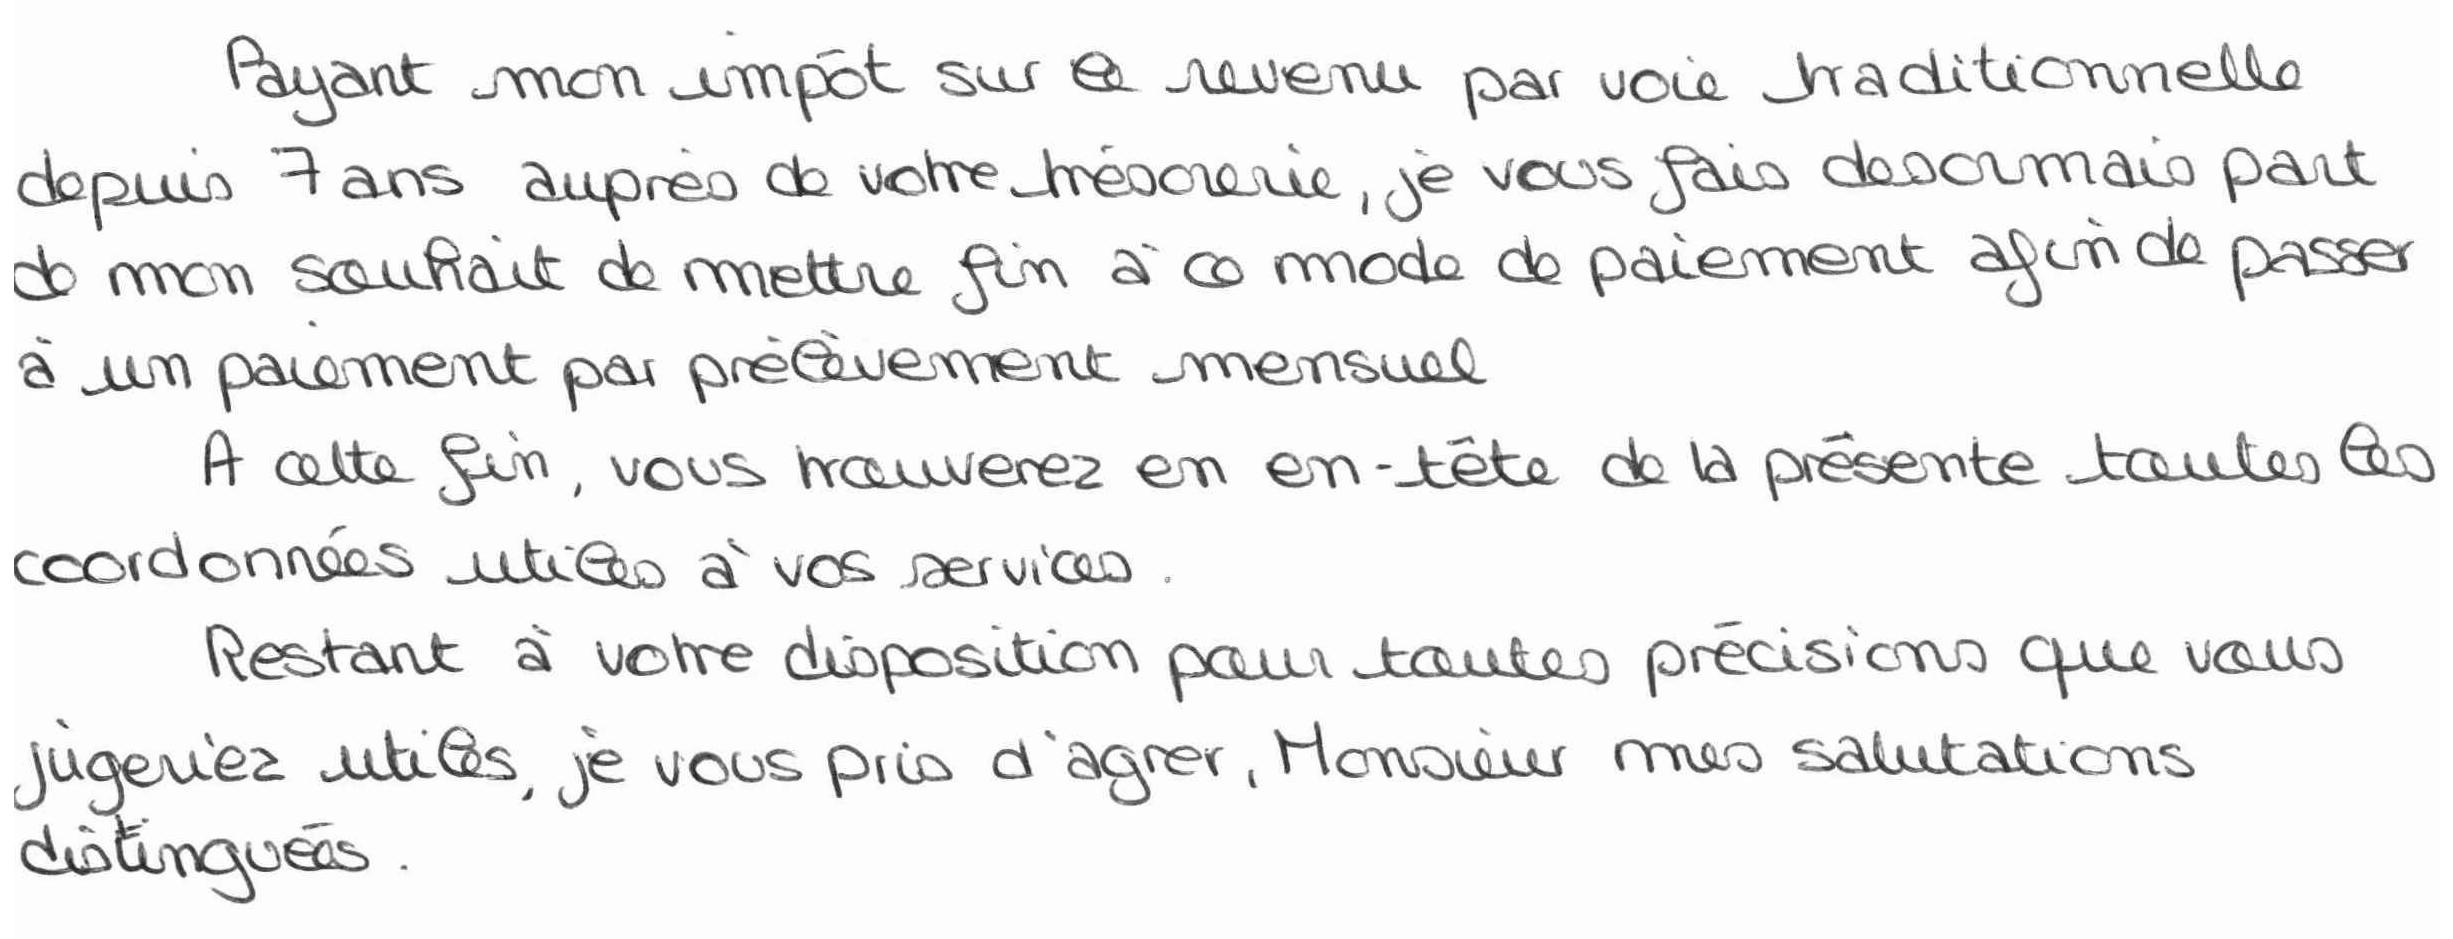 Payant mon impôt sur le revenu par voie traditionnelle
depuis 7 ans auprès de votre trésorerie, je vous fais desormais part
de mon souhait de mettre fin à ce mode de paiement afin de passer
à un paiement par prélèvement mensuel
A cette fin, vous trouverez en en-tête de la présente toutes les
coordonnées utiles à vos services.
Restant à votre disposition pour toutes précisions que vous
jugeriez utiles, je vous pris d'agrer, Monsieur mes salutations
distinguées.